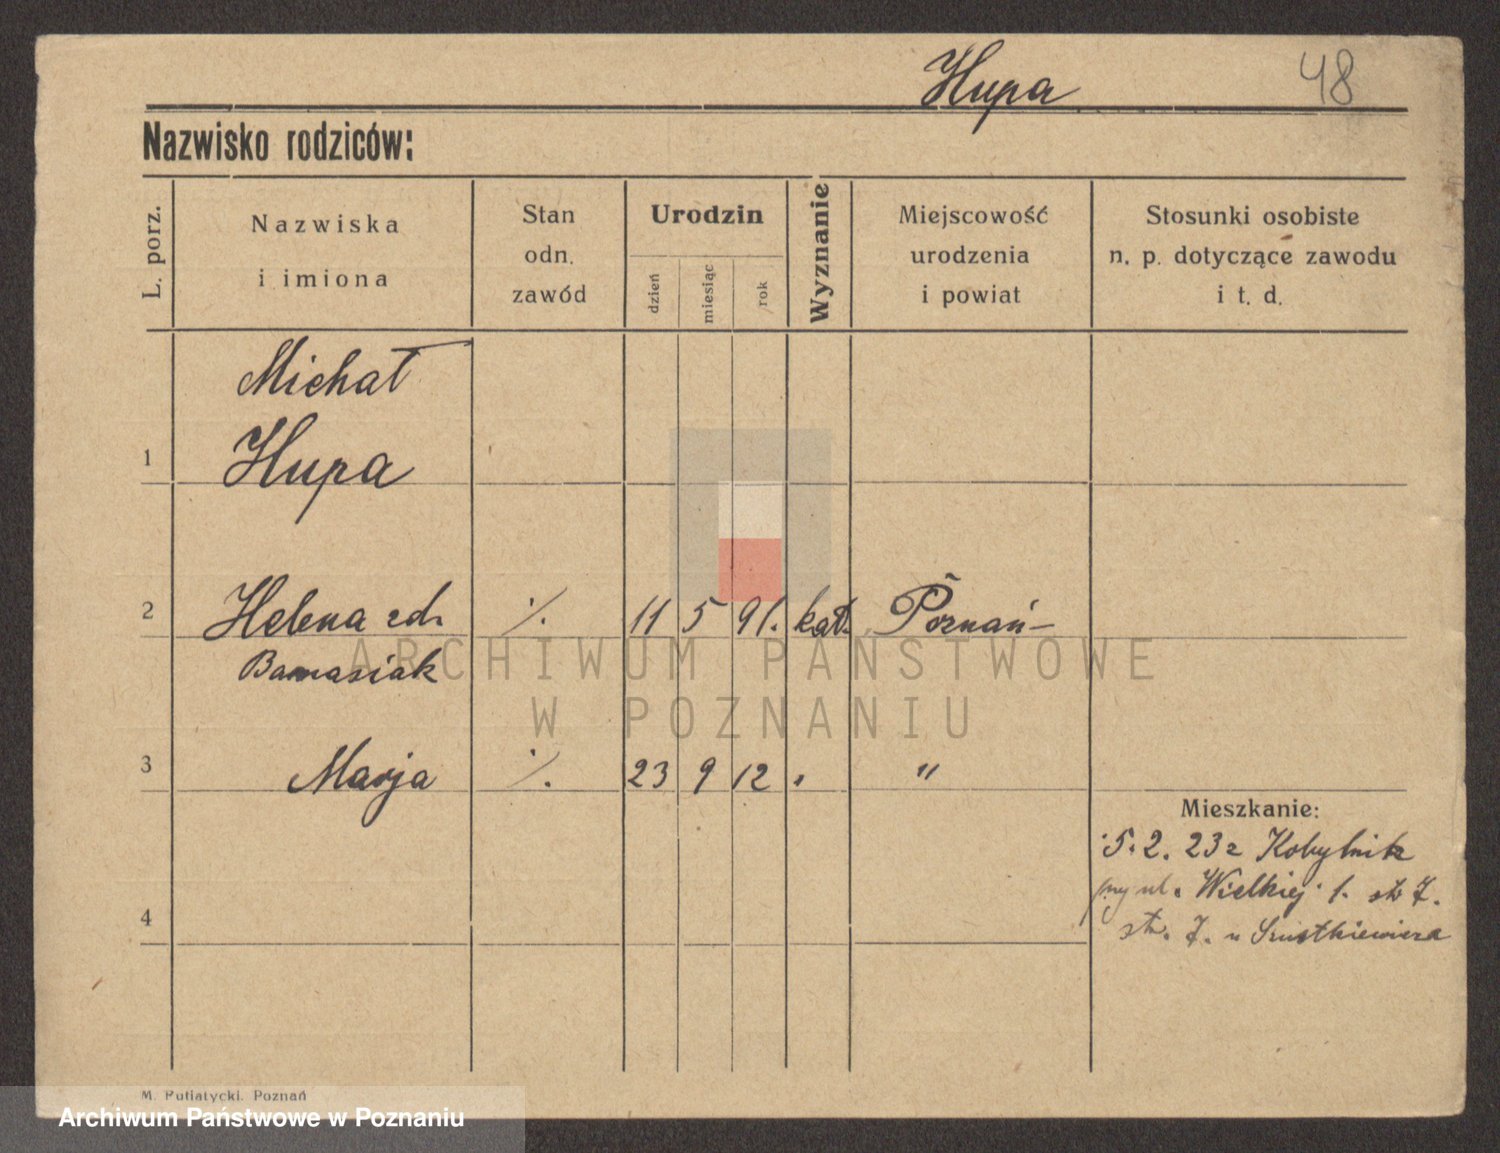 Hupa 48
Nazwisko rodziców:
L. porz.
Nazwiska
i imiona
Stan
odn.
zawód
Urodzin
dzień
miesiąc
rok
Wyznanie
Miejscowość
urodzenia
i powiat
Stosunki osobiste
n. p. dotyczące zawodu
i t. d.
Michał
1 Hupa
2 Helena zd. ./. 11 5 91. kat. Poznań
Banasiak
ARCHIWUM PAŃSTWOWE
W POZNANIU
3 Marja ./. 23 9 12 " "
Mieszkanie:
5. 2. 23 z Kobylnik
ul. Wielkiej
4
M. Putiatycki. Poznań
Archiwum Państwowe w Poznaniu